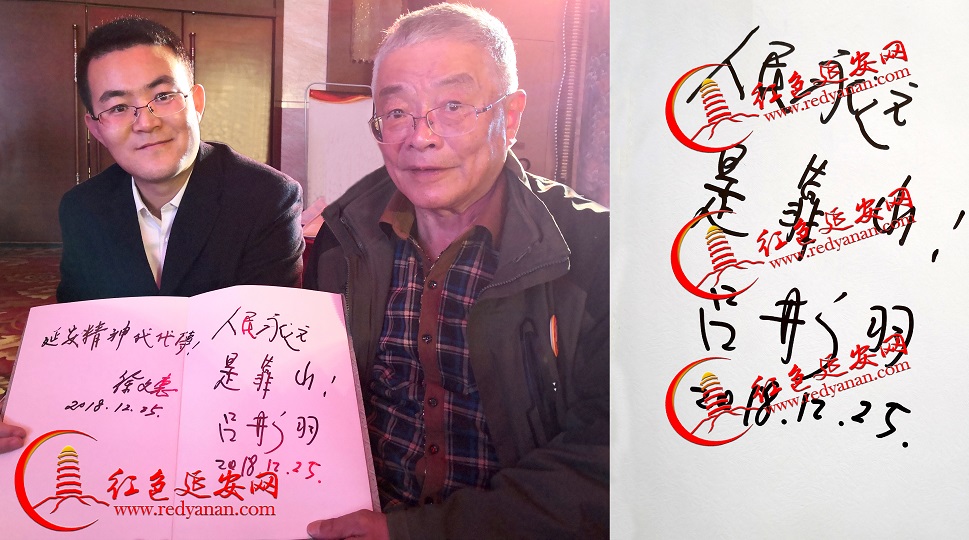 延安精神代代传！
徐文惠
2018.12.25.
人民永远
是靠山！
吕彤羽
2018.12.25.
红色延安网
www.redyanan.com
人民永远
是靠山！
吕彤羽
2018.12.25.
红色延安网
www.redyanan.com
红色延安网
www.redyanan.com
红色延安网
www.redyanan.com